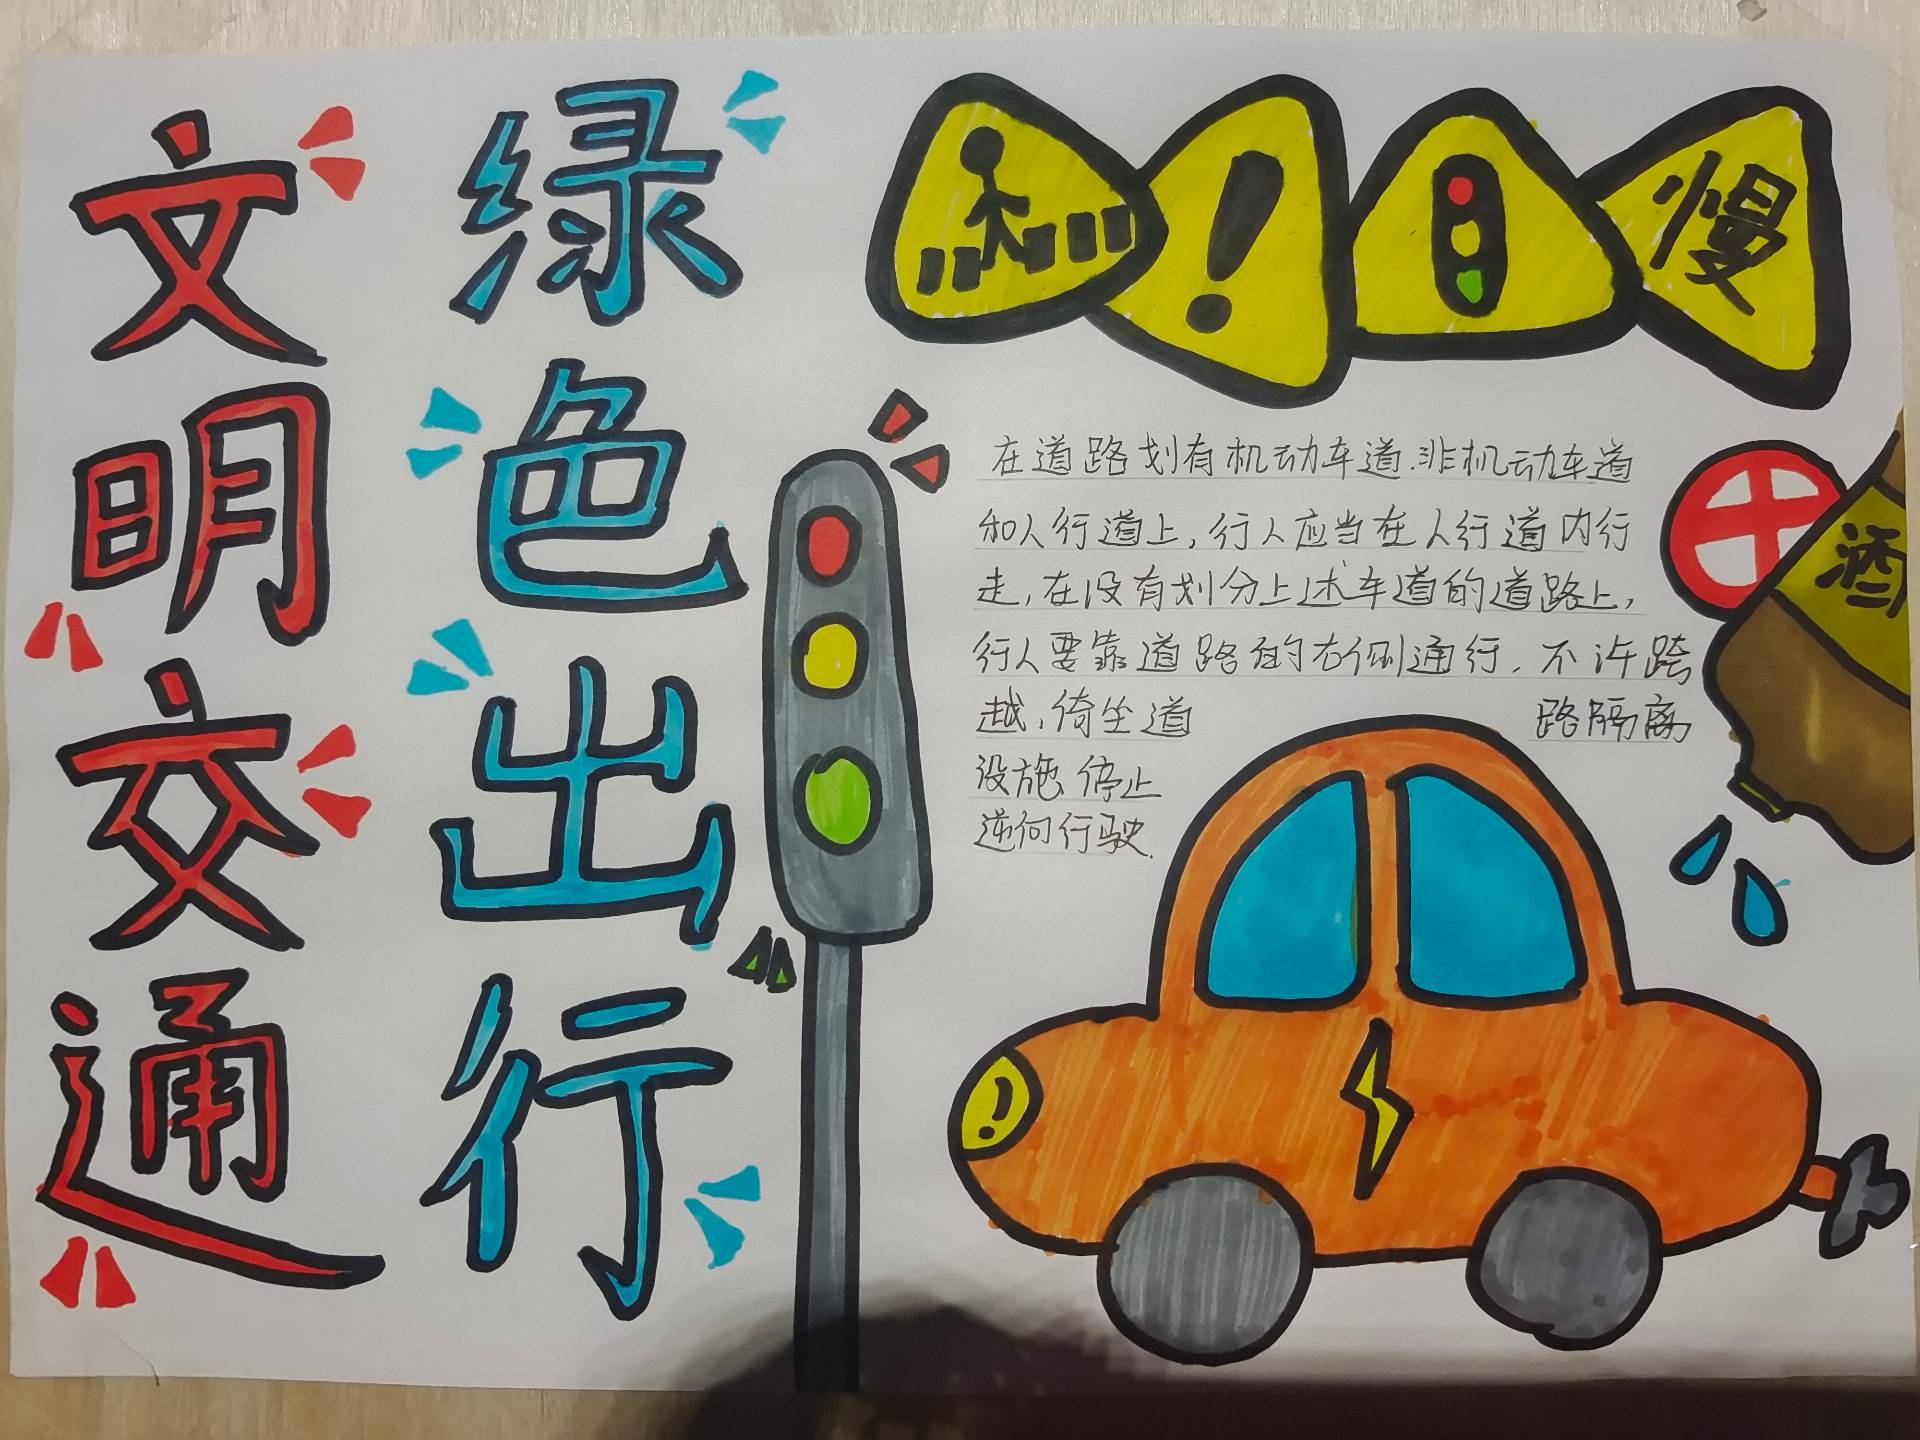 文明交通
绿色出行
慢
酒
在道路划有机动车道.非机动车道
和人行道上,行人应当在人行道内行
走,在没有划分上述车道的道路上,
行人要靠道路的右侧通行.不许跨
越,倚坐道路隔离
设施 停止
逆向行驶.